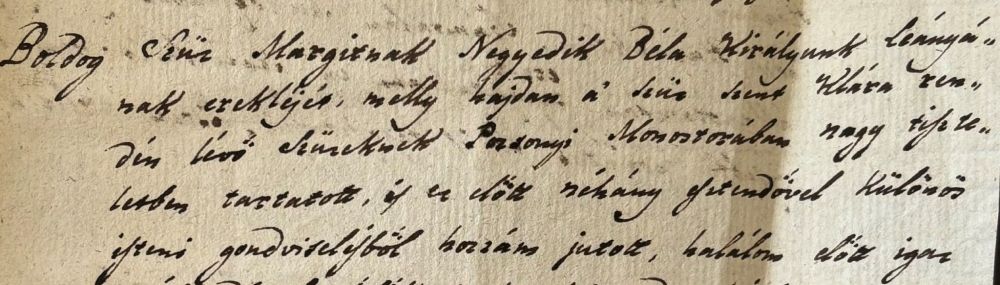 Boldog Szűz Margitnak Negyedik Béla Királyunk leányá„
nak erekljéjét, melly hajdan á szűz szent Klára ren„
dén lévő Szűzeknek Posonyi Monostorában nagy tiszte„
letben tartatott, és ez előtt néhány esztendővel különös
isteni gondviselésből hozzám jutott, halálom előtt igaz